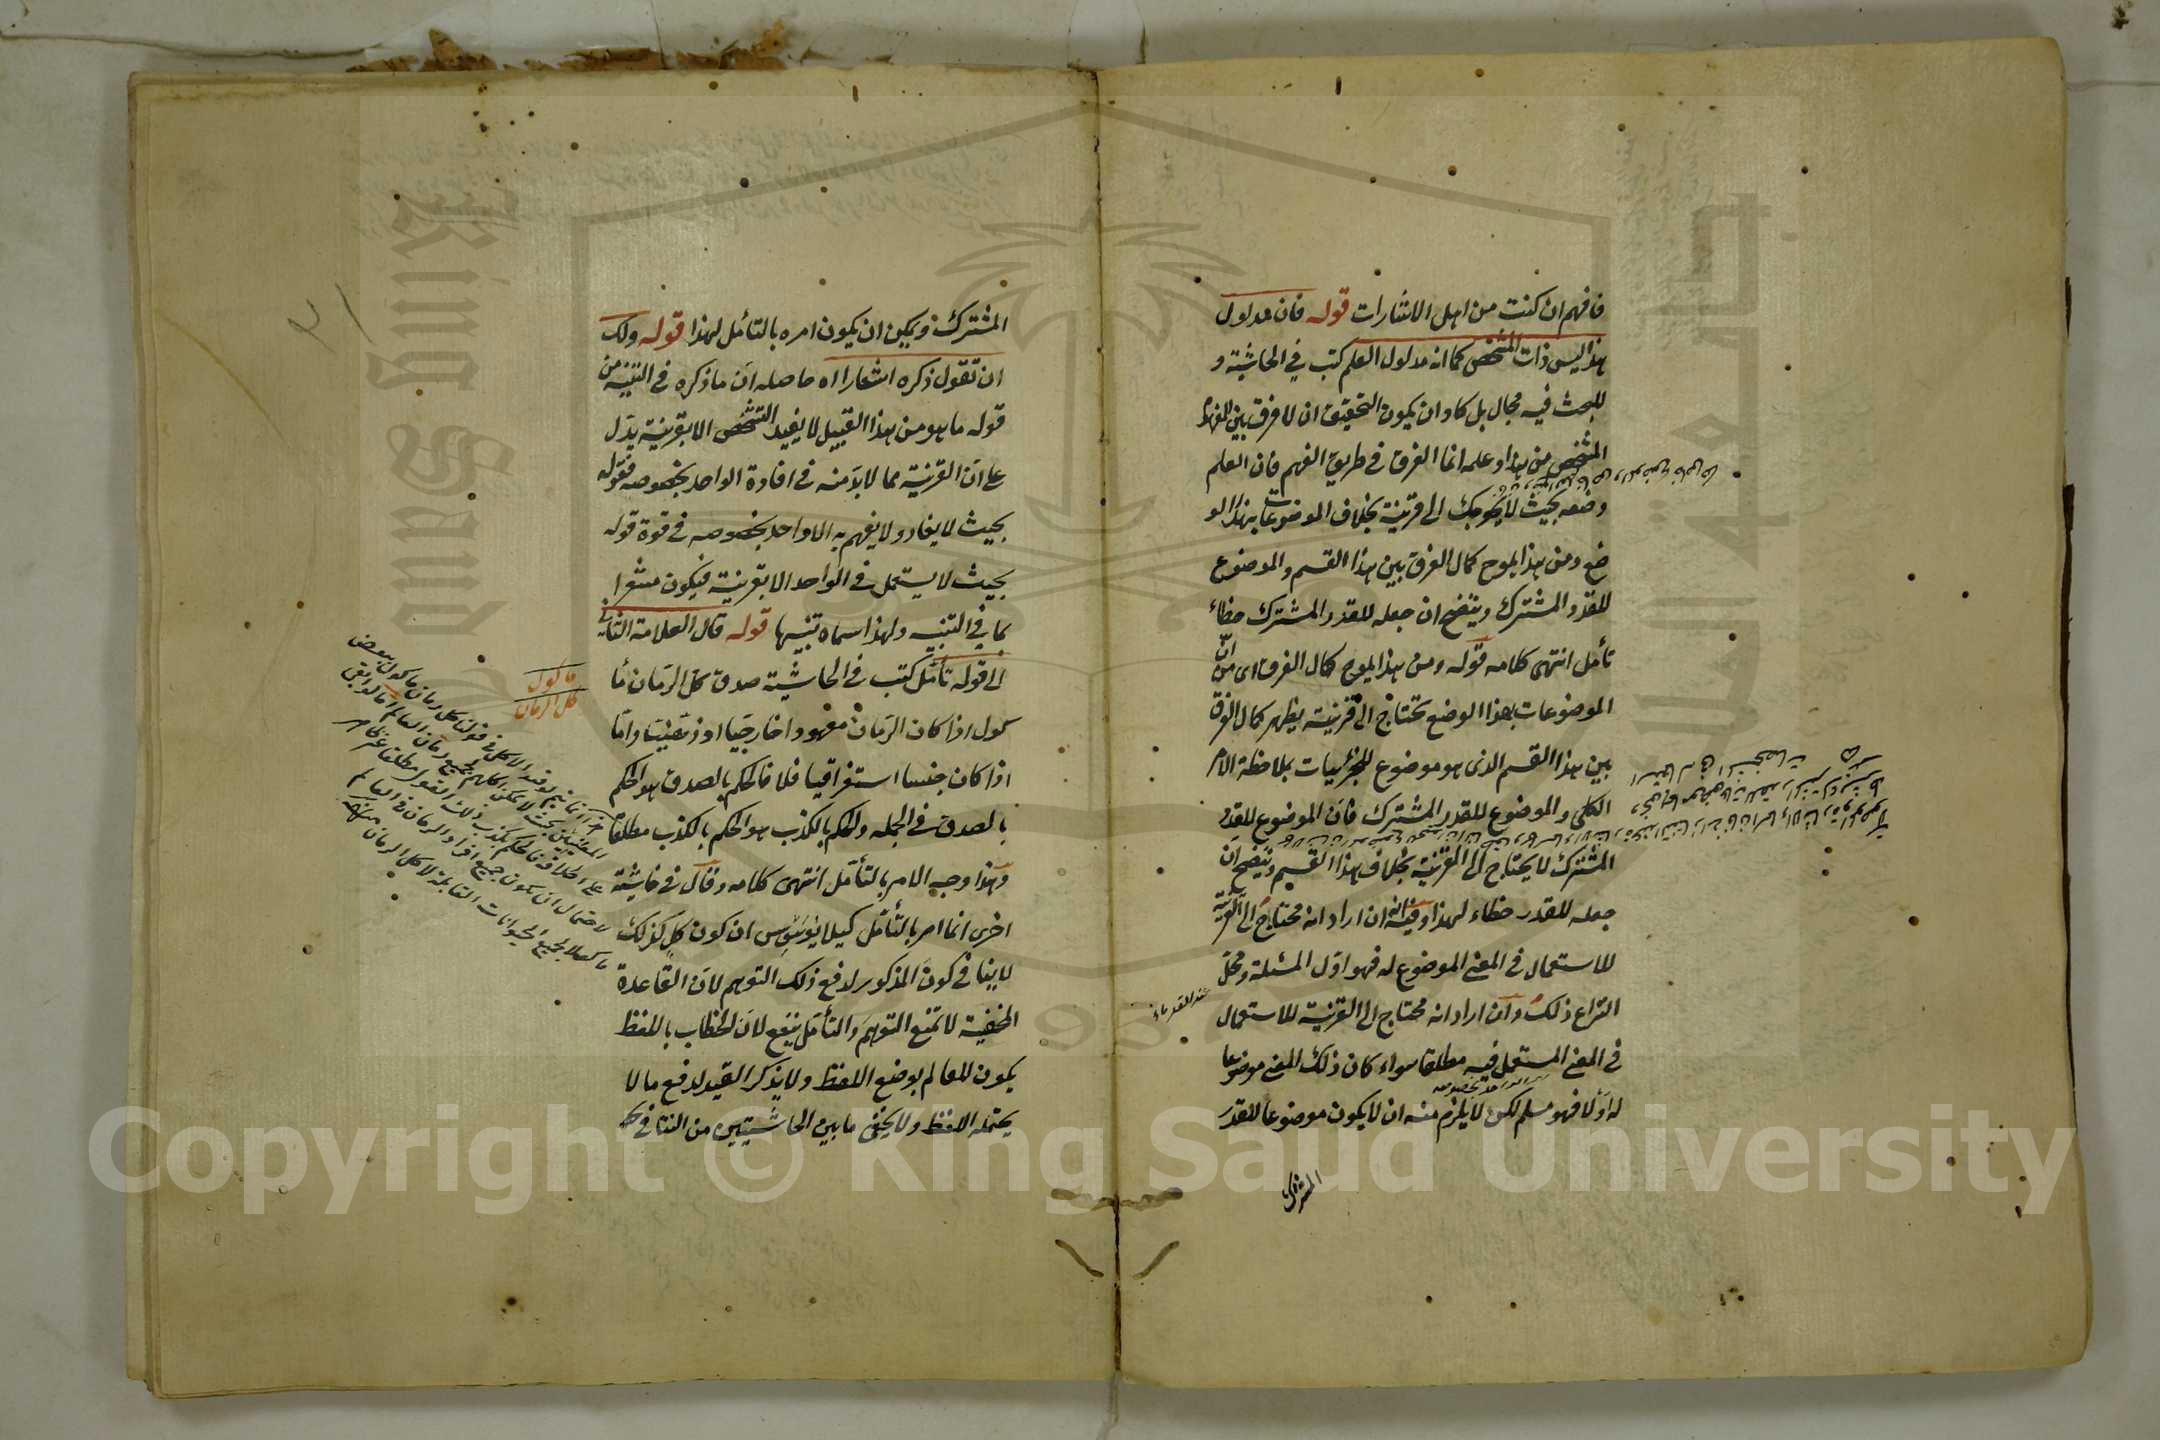 فافهم ان كنت من اهل الاشارات قوله فان مدلول
هذا ليس ذات المشخص كما انه مدلول العلم كتب في الحاشية و
للبحث فيه مجال بل كاد ان يكون التحقيق ان لا فرق بين المفهوم
المشخص من هذا وعلمه انما الفرق في طريق الفهم فان العلم
وضعه بحيث لا يحوجك الى قرينة بخلاف الموضوعات بهذا الو
ضع ومن هذا يلوح كمال الفرق بين هذا القسم والموضوع
للقدر المشترك ويتضح ان جعله للقدر المشترك خطاء
تأمل انتهى كلامه قوله ومن هذا يلوح كمال الفرق اى من انّ
الموضوعات بهذا الوضع تحتاج الى قرينة يظهر كمال الفرق
بين هذا القسم الذى هو موضوع للجزئيات بملاحظة الامر
الكلى والموضوع للقدر المشترك فان الموضوع للقدر
المشترك لا يحتاج الى القرينة بخلاف هذا القسم ويتضح ان
جعله للقدر خطاء لهذا وفيه انه ان اراد انه محتاج الى القرينة
للاستعمال في المعنى الموضوع له فهو اول المسئلة ومحل
النزاع ذلك وان اراد انه محتاج الى القرينة للاستعمال
في المعنى المستعمل فيه مطلقا سواء كان ذلك المعنى موضوعا
له او لا فهو مسلم لكن لا يلزم منه ان لا يكون موضوعا للقدر
المشترك
المشترك ويمكن ان يكون امره بالتأمل لهذا قوله ولك
ان تقول ذكره اشعارا اه حاصله ان ما ذكره في التنبيه من
قوله ما هو من هذا القبيل لا يفيد التشخص الا بقرينة يدل
على ان القرينة مما لا بد منه في افادة الواحد بخصوصه فقوله
بحيث لا يفاد ولا يفهم به الا واحد بخصوصه في قوة قوله
بحيث لا يستعمل في الواحد الا بقرينة فيكون مشعرا
بما في التنبيه ولهذا سماه تنبيها قوله قال العلامة التفتازانى
الى قوله تأمل كتب في الحاشية صدق كل الرمان مأ
كول اذا كان الرمان معهودا خارجيا او ذهنيا واما
اذا كان جنسا استغراقيا فلا فالحكم بالصدق هو الحكم
بالصدق في الجملة والحكم بالكذب هو الحكم بالكذب مطلقا
وهذا وجه الامر بالتأمل انتهى كلامه وقال في حاشية
اخرى انما امر بالتأمل كيلا يوسوس ان كون كل كذلك
لا ينافى كون المذكور لدفع ذلك التوهم لان القاعدة
الخفية لا تمنع التوهم والتأمل ينفع لان الخطاب باللفظ
يكون للعالم بوضع اللفظ ولا يذكر القيد لدفع ما لا
يحتمله اللفظ ولا يخفى ما بين الحاشيتين من التنافى
مأكول
كل الرمان
Copyright © King Saud University
King Saud